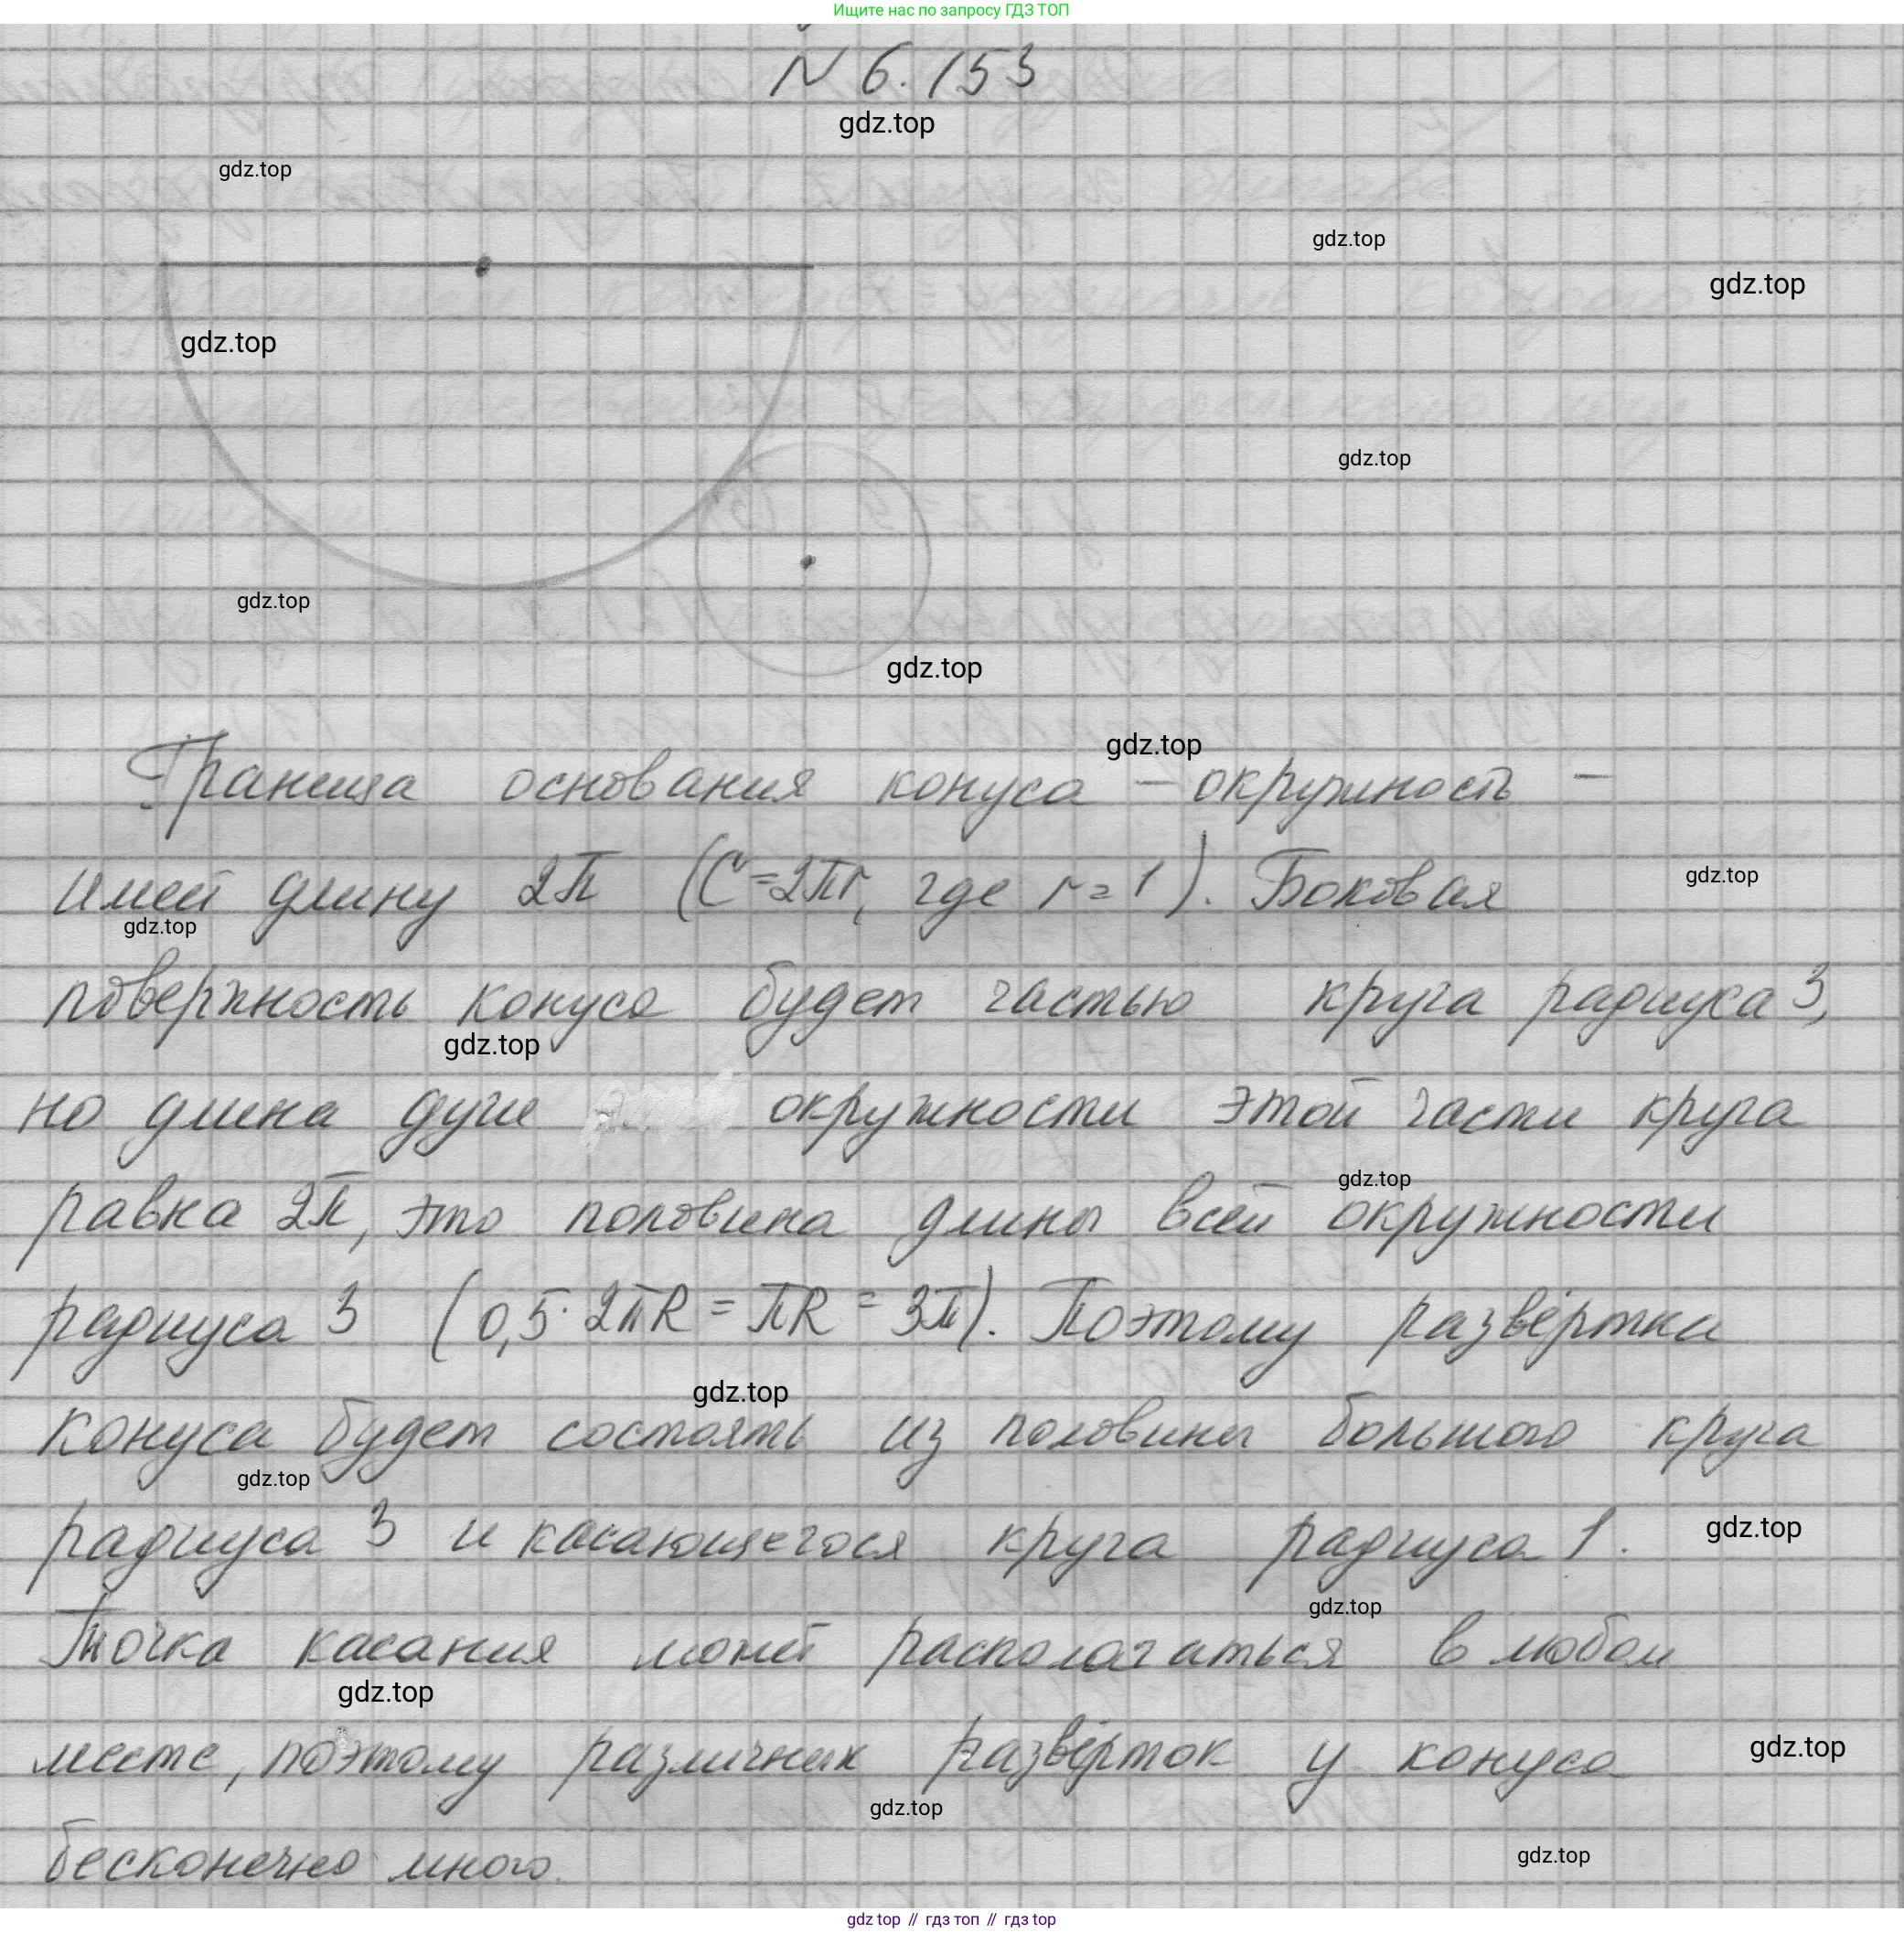 Ищите нас по запросу ГДЗ ТОП
N 6.153
gdz.top
gdz.top
gdz.top
gdz.top
gdz.top
gdz.top
gdz.top
gdz.top
gdz.top
Граница основания конуса – окружность –
имей длину 2π (C=2πr, где r=1). Боковая
gdz.top
gdz.top
поверхность конуса будет частью круга радиуса 3,
gdz.top
но длина дуги окружности этой части круга
gdz.top
равна 2π, это половина длины всей окружности
радиуса 3 (0,5·2πR=πR=3π). Поэтому развёртка
gdz.top
конуса будет состоять из половины большого круга
gdz.top
радиуса 3 и касающегося круга радиуса 1.
gdz.top
gdz.top
Точка касания может располагаться в любом
gdz.top
месте, поэтому различных развёрток у конуса
gdz.top
gdz.top
бесконечно много.
gdz.top
gdz top // гдз топ // гдз top